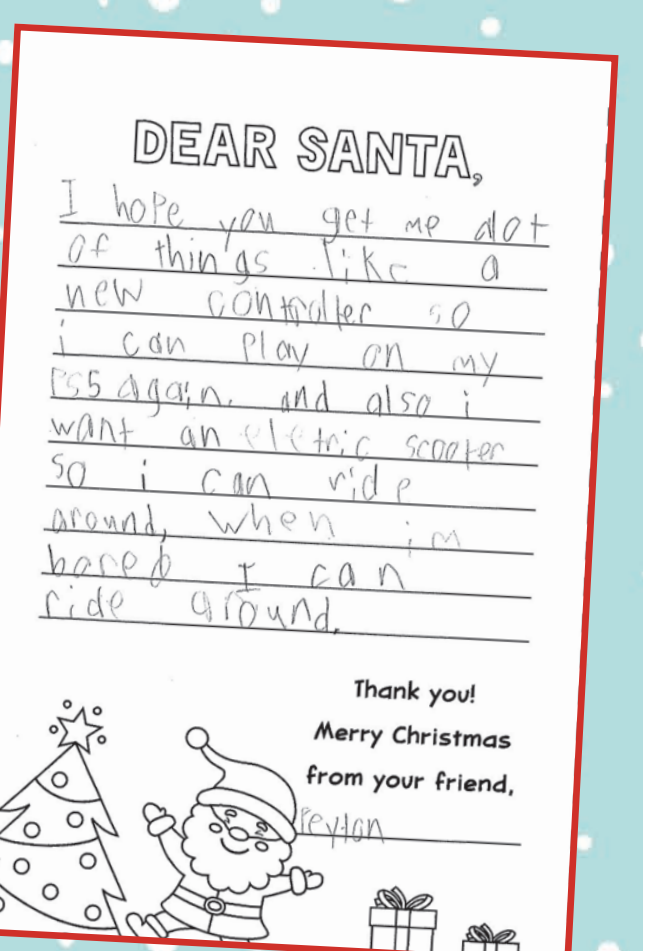 DEAR SANTA,
I hope you get me alot
of things like a
new controller so
i can play on my
Ps5 again. and also i
want an eletric scooter
so i can ride
around, when im
bored I can
ride around.
Thank you!
Merry Christmas
from your friend,
Peyton